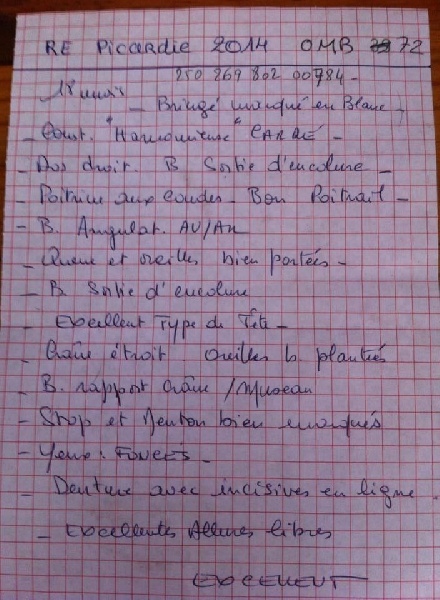 RE Picardie 2014 OMB 72
250 269 802 00784 -
18 mois - Bringé marqué en Blanc -
- Const. "Harmonieuse" CARRÉ -
- Dos droit. B Sortie d'encolure -
- Poitrine aux coudes - Bon Poitrail -
- B. Angulat. AV/AR
- Queue et oreilles bien portées -
- B Sortie d'encolure
- Excellent Type de Tête -
- Crâne étroit oreilles b. plantées
- B. rapport Crâne / Museau
- Stop et Menton bien marqués
- Yeux : FONCÉS -
- Denture avec incisives en ligne.
- Excellentes Allures libres
EXCELLENT